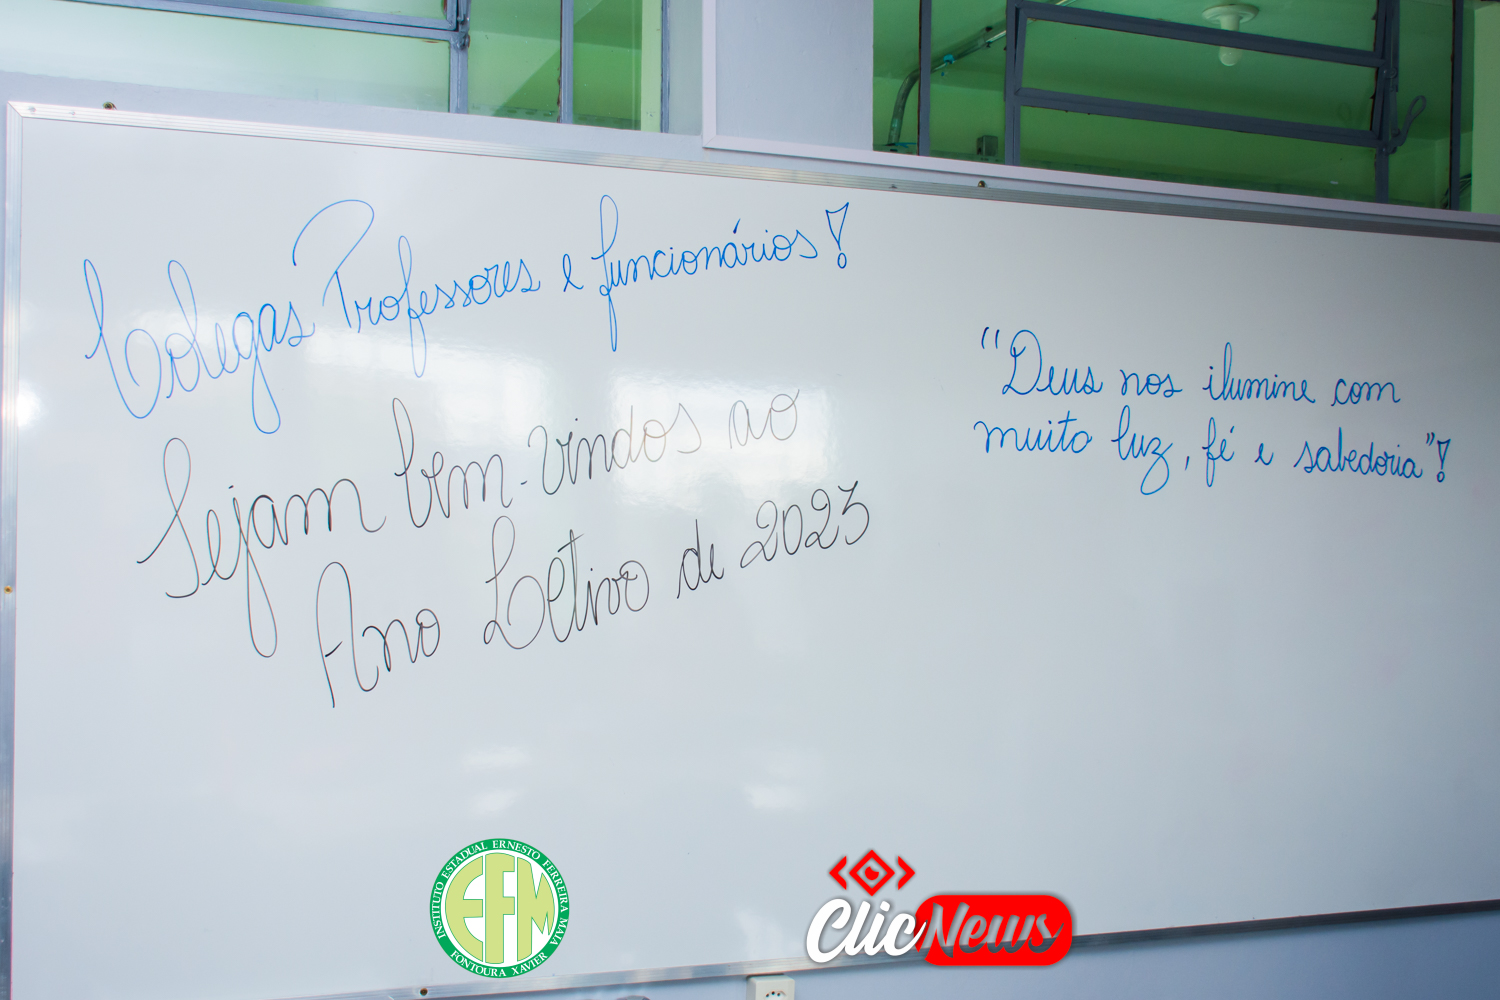 Colegas Professores e funcionários!
Sejam bem-vindos ao
Ano Letivo de 2023
"Deus nos ilumine com
muita luz, fé e sabedoria"!
INSTITUTO ESTADUAL ERNESTO FERREIRA MAIA
EFM
FONTOURA XAVIER
ClicNews